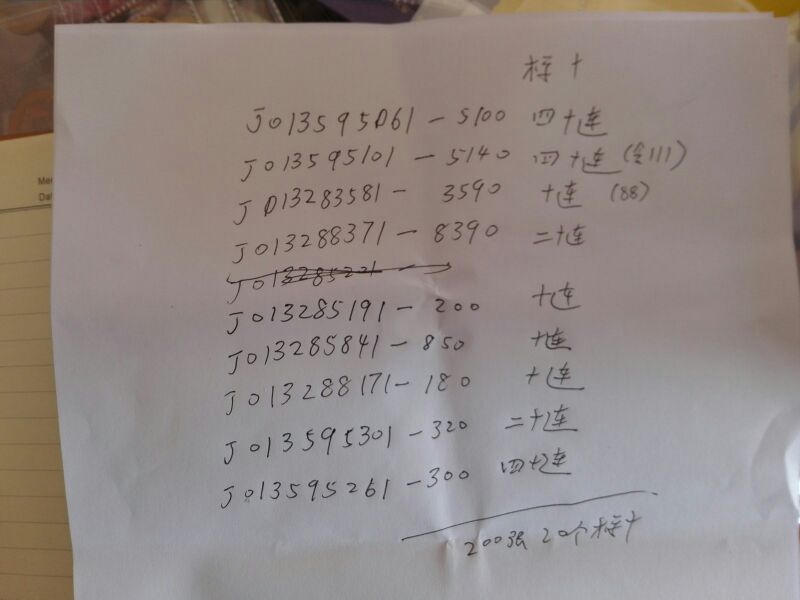 标十
J013595061-5100 四十连
J013595101-5140 四十连(含111)
J013283581-3590 十连 (88)
J013288371-8390 二十连
J013285221-
J013285191-200 十连
J013285841-850 十连
J013288171-180 十连
J013595301-320 二十连
J013595261-300 四十连
200张 20个标十
Me
Da